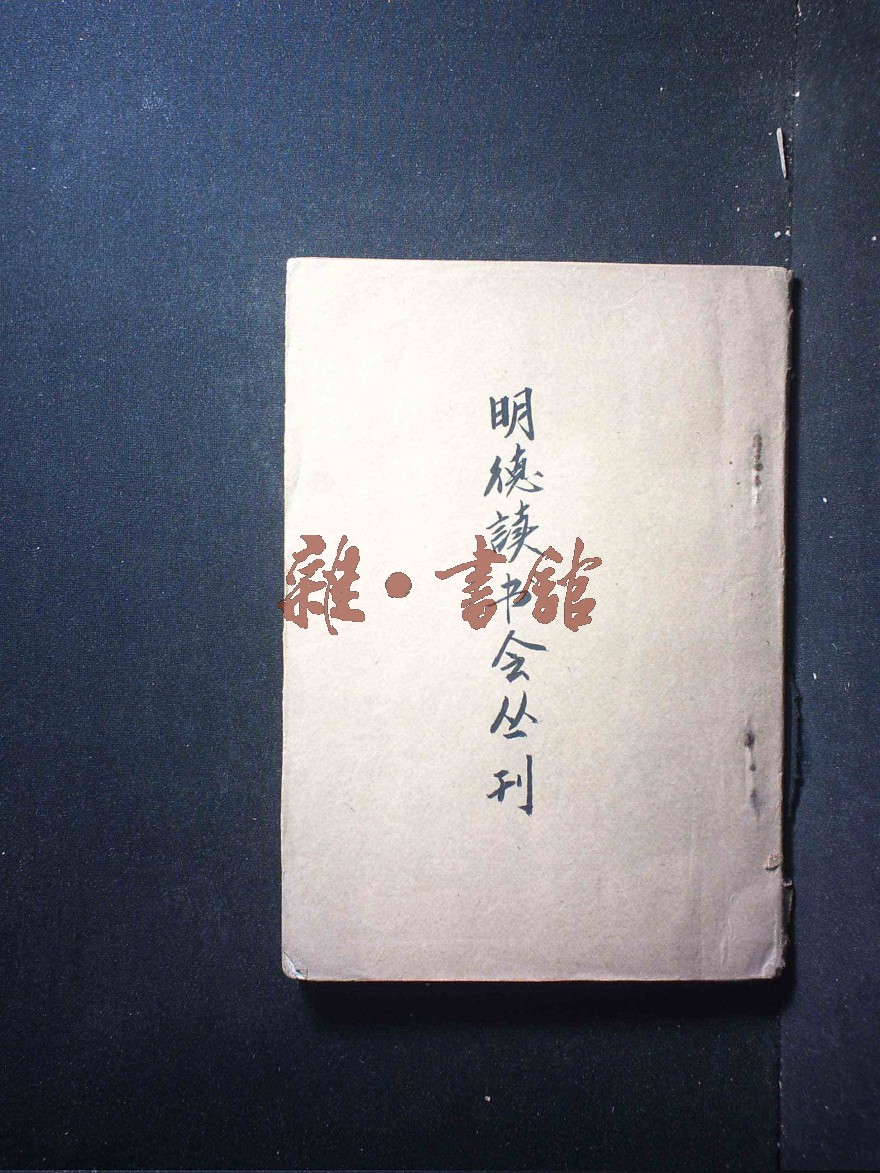 明德读书会丛刊
雜·書館